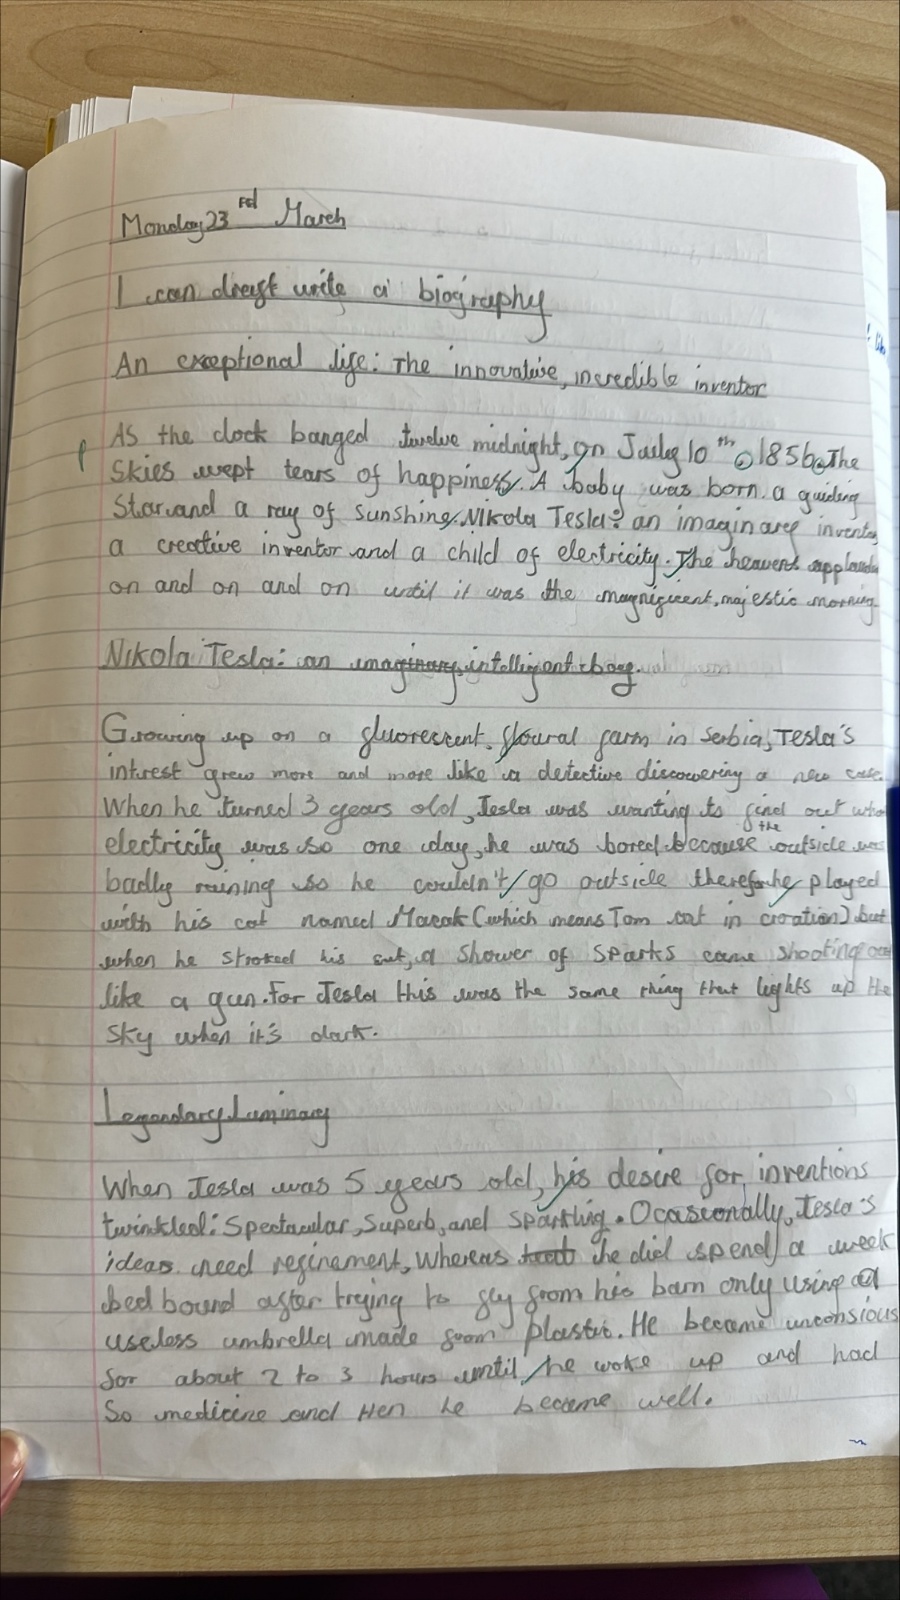 Monday 23rd March
I can draft write a biography
An exceptional life: The innovative, incredible inventor
As the clock banged twelve midnight, on July 10th, 1856. The
skies wept tears of happiness. A baby was born. a guiding
star and a ray of sunshine. Nikola Tesla: an imaginary inventor
a creative inventor and a child of electricity. The heavens
on and on and on until it was the magnificent, majestic morning.
Nikola Tesla: an imaginary, intelligent boy.
Growing up on a fluorescent, floural farm in Serbia, Tesla's
intrest grew more and more like a detective discovering a new case.
When he turned 3 years old, Tesla was wanting to find out
electricity was so one day, he was bored because the outside was
badly raining so he couldn't go outside he played
with his cat named Macak (which means Tom cat in croation) but
when he stroked his cat, a shower of sparks came shooting out
like a gun. For Tesla this was the same thing that lights up the
sky when it's dark.
Legendary Luminary
When Tesla was 5 years old, his desire for inventions
twinkled: Spectacular, superb, and sparkling. Ocasionally, Tesla's
ideas need refinement, whereas he did spend a week
bed bound after trying to fly from his barn only using a
useless umbrella made from plastic. He became unconsious
for about 2 to 3 hours until, he woke up and had
so medicine and he became well.